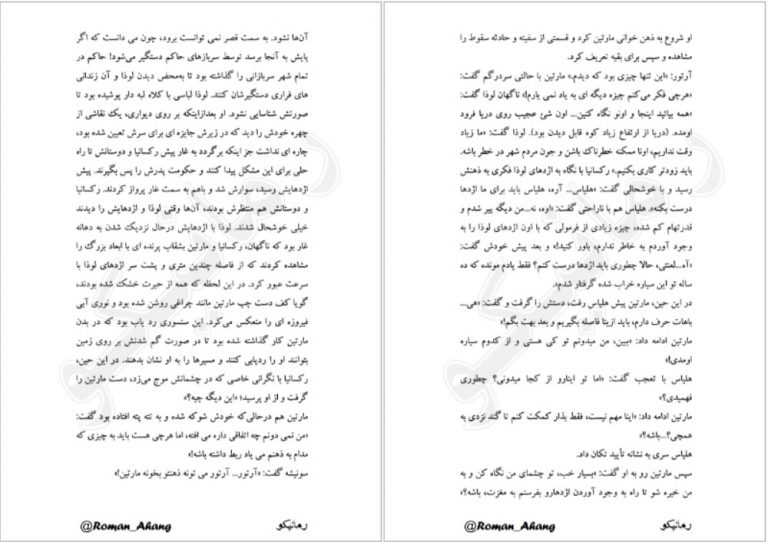 آن‌ها نشود. به سمت قصر نمی توانست برود، چون می دانست که اگر
پایش به آنجا برسد توسط سربازهای حاکم دستگیر می‌شود! حاکم در
تمام شهر سربازانی را گذاشته بود تا به‌محض دیدن لوذا و آن زندانی
های فراری دستگیرشان کنند. لوذا لباسی با کلاه لبه دار پوشیده بود تا
صورتش شناسایی نشود. او بعدازاینکه بر روی دیواری، یک نقاشی از
چهره خودش را دید که در زیرش جایزه ای برای سرش تعیین شده بود،
چاره ای نداشت جز اینکه برگردد به غار پیش رکسانیا و دوستانش تا راه
حلی برای این مشکل پیدا کنند و حکومت پدرش را پس بگیرند. پیش
اژدهایش وسید، سوارش شد و باهم به سمت غار پرواز کردند. رکسانیا
و دوستانش هم منتظرش بودند، آن‌ها وقتی لوذا و اژدهایش را دیدند
خیلی خوشحال شدند. لوذا با اژدهایش درحال نزدیک شدن به دهانه
غار بود که ناگهان، رکسانیا و مارتین بشقاب پرنده ای با ابعاد بزرگ را
مشاهده کردند که از فاصله چندین متری و پشت سر اژدهای لوذا با
سرعت عبور کرد. در این لحظه که همه از حیرت خشک شده بودند،
گویا کف دست چپ مارتین مانند چراغی روشن شده بود و نوری آبی
فیروزه ای را منعکس می‌کرد. این سنسوری رد یاب بود که در بدن
مارتین کار گذاشته شده بود تا در صورت گم شدنش بر روی زمین
بتوانند او را ردیابی کنند و مسیرها را به او نشان بدهند. در این حین،
رکسانیا با نگرانی خاصی که در چشمانش موج می‌زد، دست مارتین را
گرفت و از او پرسید: «این دیگه چیه؟»
مارتین هم درحالی‌که خودش شوکه شده و به تته پته افتاده بود گفت:
«من نمی دونم چه اتفاقی داره می افته، اما هرچی هست باید به چیزی که
مدام به ذهنم می یاد ربط داشته باشه!»
سونیشه گفت: «آرتور... آرتور می تونه ذهنتو بخونه مارتین!»
رمانیکو
@Roman_Ahang
او شروع به ذهن خوانی مارتین کرد و قسمتی از سفینه و حادثه سقوط را
مشاهده و سپس برای بقیه تعریف کرد.
آرتور: «این تنها چیزی بود که دیدم.» مارتین با حالتی سردرگم گفت:
«هرچی فکر می‌کنم چیزه دیگه ای به یاد نمی یارم!» ناگهان لوذا گفت:
«همه بیائید اینجا و اونو نگاه کنین... اون شئ عجیب روی دریا فرود
اومده. (دریا از ارتفاع زیاد کوه قابل دیدن بود). لوذا گفت: «ما زیاد
وقت نداریم، اونا ممکنه خطرناک باشن و جون مردم شهر در خطر باشه.
باید زودتر کاری بکنیم.» رکسانیا با نگاه به اژدهای لوذا فکری به ذهنش
رسید و با خوشحالی گفت: «هلیاس... آره، هلیاس باید برای ما اژدها
درست بکنه». هلیاس هم با ناراحتی گفت: «اوه، نه...من دیگه پیر شدم و
قدرتهام کم شده، چیزه زیادی از فرمولی که با اون اژدهای لوذا را به
وجود آوردم به خاطر ندارم، باور کنید!» و بعد پیش خودش گفت:
«آه...لعنتی، حالا چطوری باید اژدها درست کنم؟ فقط یادم مونده که ده
ساله تو این سیاره خراب شده گرفتار شدم.»
در این حین، مارتین پیش هلیاس رفت، دستش را گرفت و گفت: «هی...
باهات حرف دارم، باید ازینا فاصله بگیریم و بعد بهت بگم!»
مارتین ادامه داد: «ببین، من میدونم تو کی هستی و از کدوم سیاره
اومدی!»
هلیاس با تعجب گفت: «اما تو اینارو از کجا میدونی؟ چطوری
فهمیدی؟»
مارتین ادامه داد: «اینا مهم نیست، فقط بذار کمکت کنم تا گند نزدی به
همچی؟...باشه؟»
هلیاس سری به نشانه تأیید تکان داد.
سپس مارتین رو به او گفت: «بسیار خب، تو چشمای من نگاه کن و به
من خیره شو تا راه به وجود آوردن اژدهارو بفرسنم به مغزت، باشه؟»
رمانیکو
@Roman_Ahang